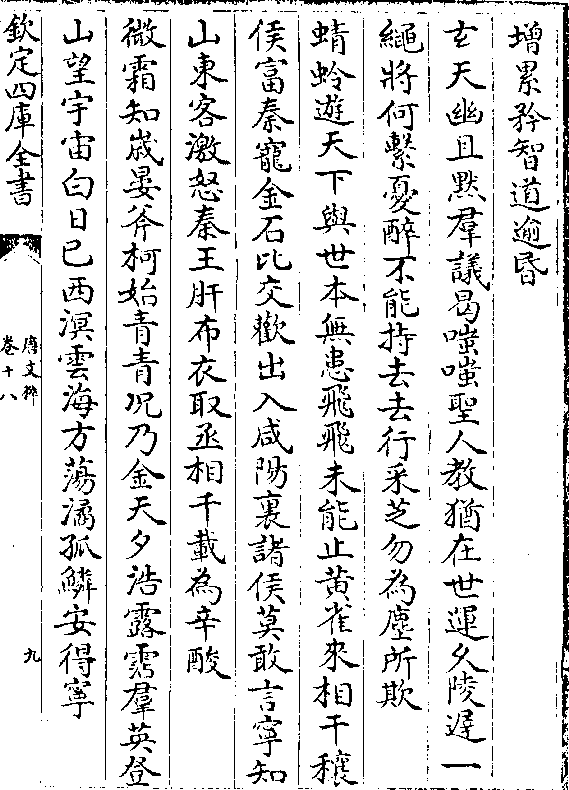 增累矜智道逾昏
玄天幽且默羣議曷嗤嗤聖人教猶在世運久陵遲一
繩將何繫憂醉不能持去去行采芝勿為塵所欺
蜻蛉遊天下與世本無患飛飛未能止黄雀來相干穰
侯富秦寵金石比交歡出入咸陽裏諸侯莫敢言寧知
山東客激怒秦王肝布衣取丞相千載為辛酸
微霜知歲晏斧柯始青青况乃金天夕浩露霑羣英登
山望宇宙白日已西溟雲海方蕩潏孤鱗安得寧
欽定四庫全書
唐文粹
卷十八
九